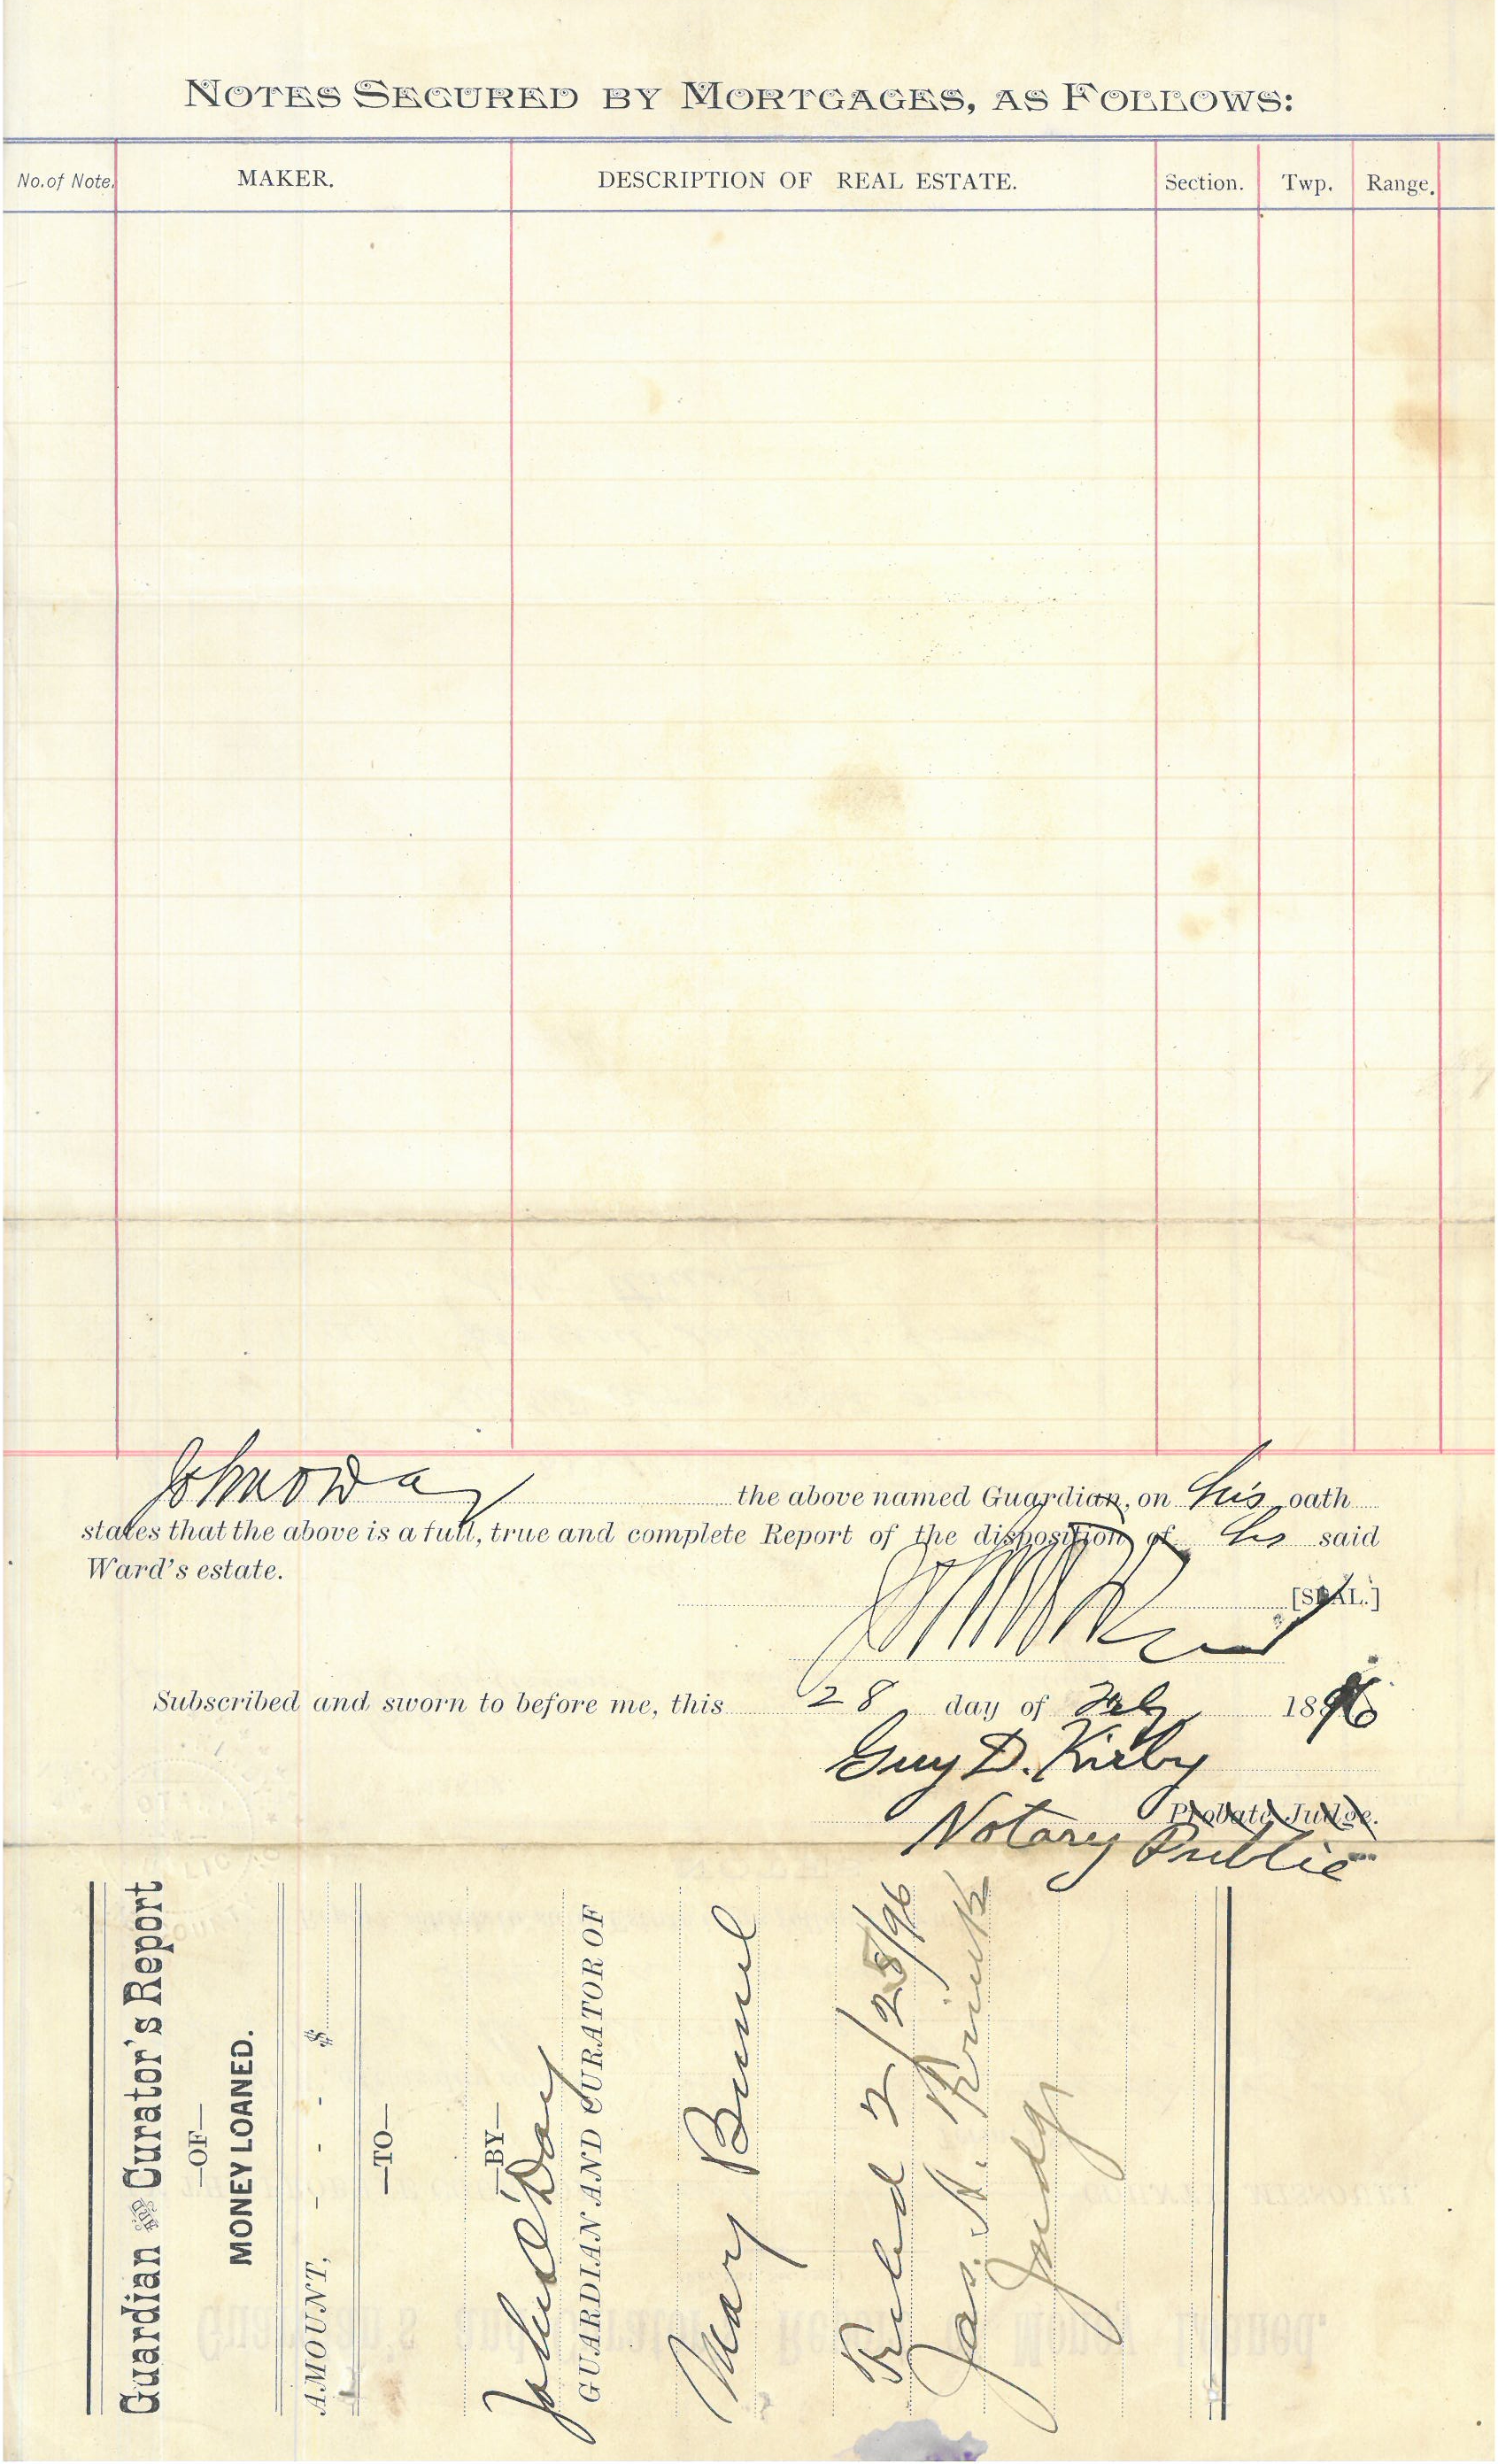 NOTES SECURED BY MORTGAGES, AS FOLLOWS:
No. of Note. MAKER. DESCRIPTION OF REAL ESTATE. Section. Twp. Range.
John O Day the above named Guardian, on his oath
states that the above is a full, true and complete Report of the disposition of his said
Ward's estate.
[SEAL.]
Subscribed and sworn to before me, this 28 day of Feb 1896
Guy D. Kirby
Probate Judge.
Notary Public
Guardian and Curator's Report
—OF—
MONEY LOANED.
AMOUNT, - - - - $
—TO—
—BY—
John O'Day
GUARDIAN AND CURATOR OF
Mary
Filed 2/28/96
Jas. H.
Judge